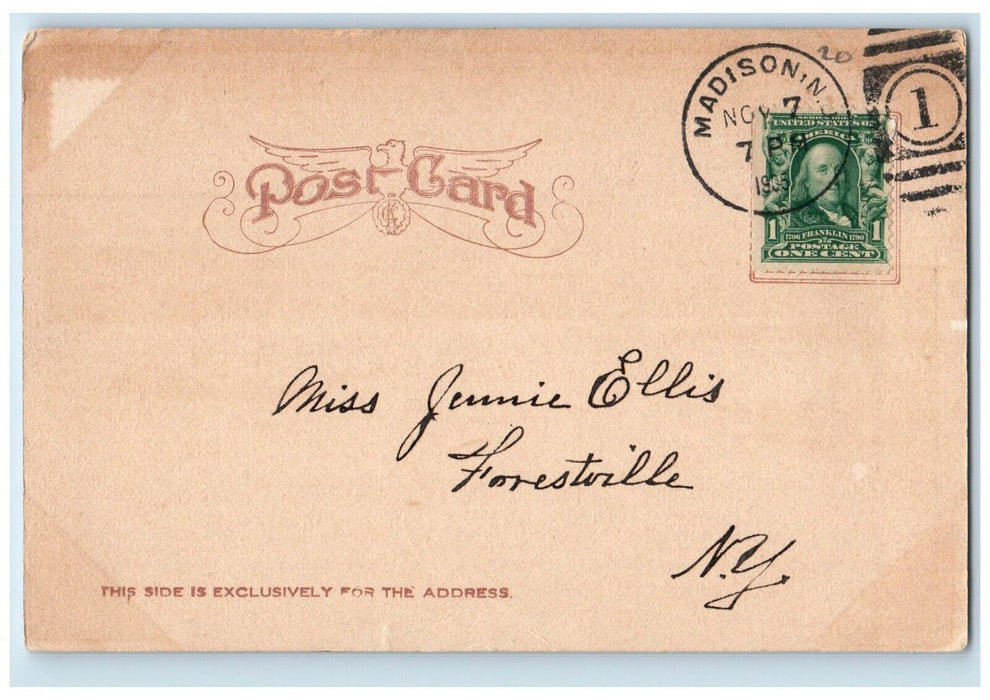 20
MADISON, N.
NOV 7
7 P.M
1905
1
Post Card
SERIES 1902
UNITED STATES OF
AMERICA
1 1706 FRANKLIN 1790 1
POSTAGE
ONE CENT
Miss Jennie Ellis
Forrestville
N.Y.
THIS SIDE IS EXCLUSIVELY FOR THE ADDRESS.